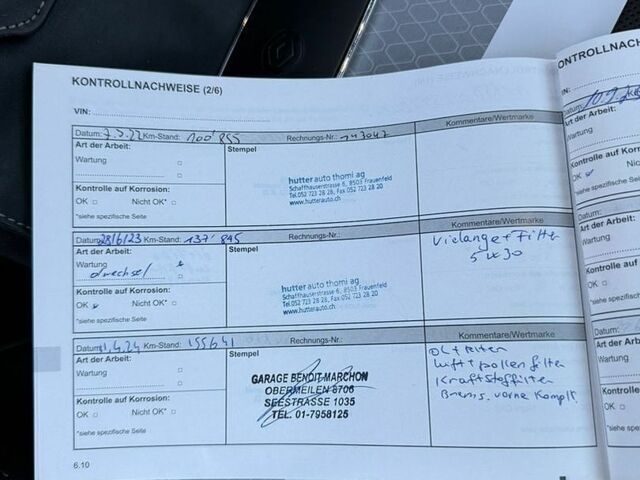 KONTROLLNACHWEISE (2/6)
VIN:
Datum: 7.3.22 Km-Stand: 100'855 Rechnungs-Nr.: 143047 Kommentare/Wertmarke
Art der Arbeit: Stempel
Wartung
Kontrolle auf Korrosion:
OK Nicht OK*
*siehe spezifische Seite
hutter auto thomi ag
Schaffhauserstrasse 6, 8503 Frauenfeld
Tel.052 723 28 28, Fax 052 723 28 20
www.hutterauto.ch
Datum: 28/6/23 Km-Stand: 137'845 Rechnungs-Nr.: Kommentare/Wertmarke
Art der Arbeit: Stempel
Wartung
Kontrolle auf Korrosion:
OK Nicht OK*
*siehe spezifische Seite
hutter auto thomi ag
Schaffhauserstrasse 6, 8503 Frauenfeld
Tel.052 723 28 28, Fax 052 723 28 20
www.hutterauto.ch
+ Filter
5W30
Datum: 1.4.24 Km-Stand: 155641 Rechnungs-Nr.: Kommentare/Wertmarke
Art der Arbeit: Stempel
Wartung
Kontrolle auf Korrosion:
OK Nicht OK*
*siehe spezifische Seite
GARAGE BENOIT MARCHON
OBERMEILEN 8706
SEESTRASSE 1035
TEL. 01-7958125
Luft + pollenfilter
Kraftstoffilter
Brems. vorne Kompl.
6.10
KONTROLLNACHWEISE
Datum:
Art der Arbeit:
Wartung
Kontrolle auf
OK
*siehe spezifische
Art der Arbeit:
Wartung
Kontrolle auf
OK
*siehe spezifische
Wartung
Kontrolle auf
OK